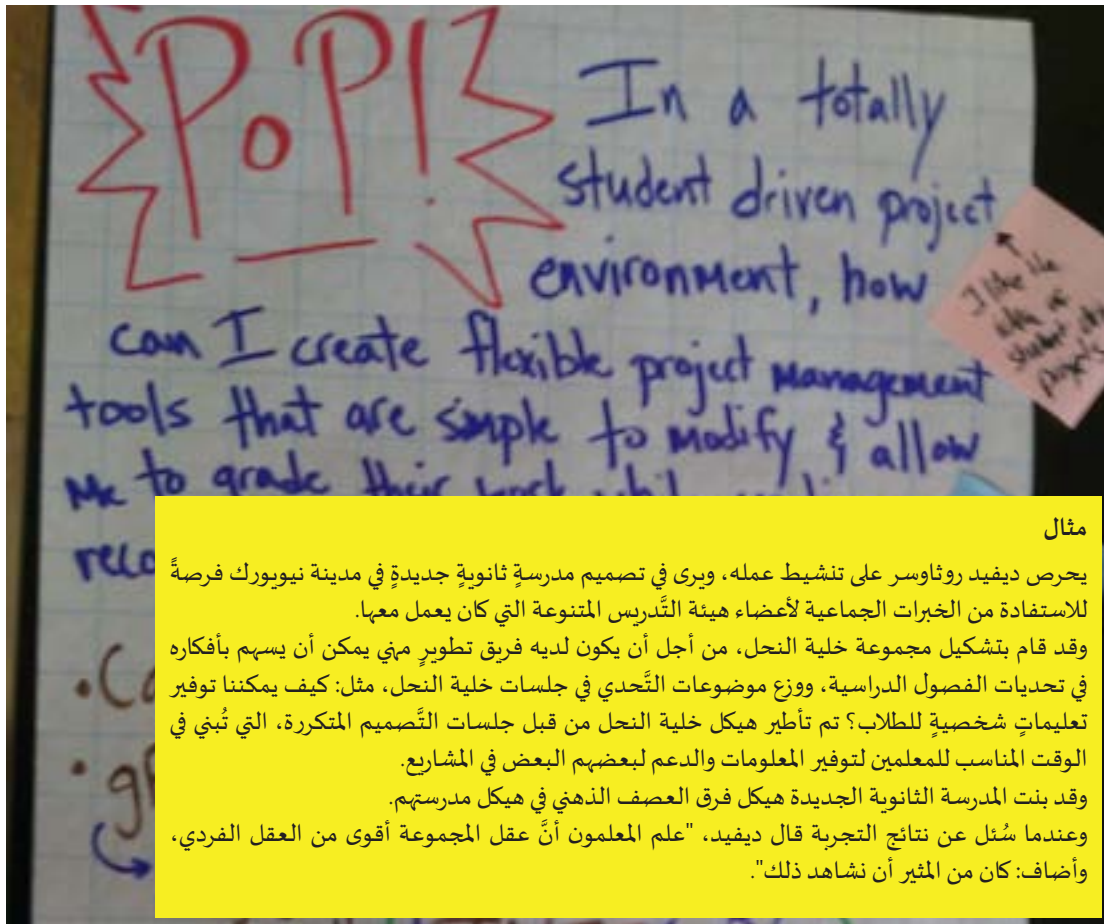 PoP!
In a totally
student driven project
environment, how
can I create flexible project management
tools that are simple to modify & allow
me to grade their work while
reco
I like the
idea of
student
projects
مثال
يحرص ديفيد روثاوسر على تنشيط عمله، ويرى في تصميم مدرسةٍ ثانويةٍ جديدةٍ في مدينة نيويورك فرصةً
للاستفادة من الخبرات الجماعية لأعضاء هيئة التَّدريس المتنوعة التي كان يعمل معها.
وقد قام بتشكيل مجموعة خلية النحل، من أجل أن يكون لديه فريق تطويرٍ مهني يمكن أن يسهم بأفكاره
في تحديات الفصول الدراسية، ووزع موضوعات التَّحدي في جلسات خلية النحل، مثل: كيف يمكننا توفير
تعليماتٍ شخصيةٍ للطلاب؟ تم تأطير هيكل خلية النحل من قبل جلسات التَّصميم المتكررة، التي تُبني في
الوقت المناسب للمعلمين لتوفير المعلومات والدعم لبعضهم البعض في المشاريع.
وقد بنت المدرسة الثانوية الجديدة هيكل فرق العصف الذهني في هيكل مدرستهم.
وعندما سُئل عن نتائج التجربة قال ديفيد، "علم المعلمون أنَّ عقل المجموعة أقوى من العقل الفردي،
وأضاف: كان من المثير أن نشاهد ذلك".